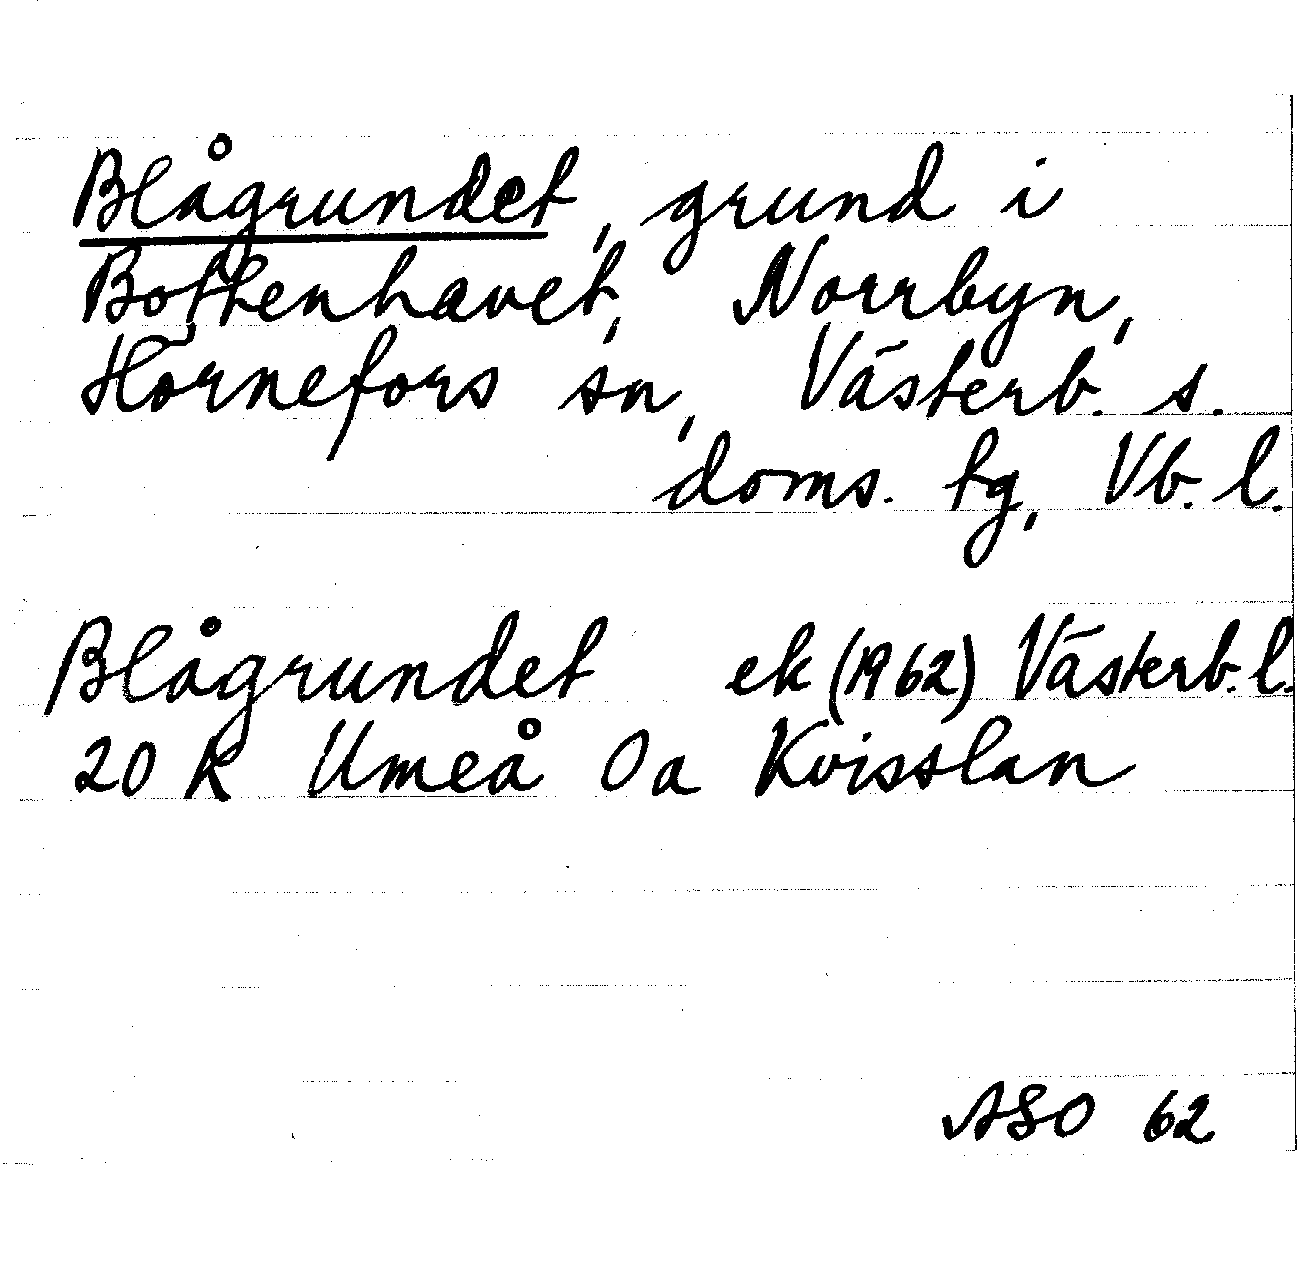 Blågrundet, grund i
Bottenhavet, Norrbyn,
Hörnefors sn, Västerb. s.
doms. tg, Vb. l.
Blågrundet ek (1962) Västerb. l.
20 K Umeå 0a Kvisslan
ASO 62